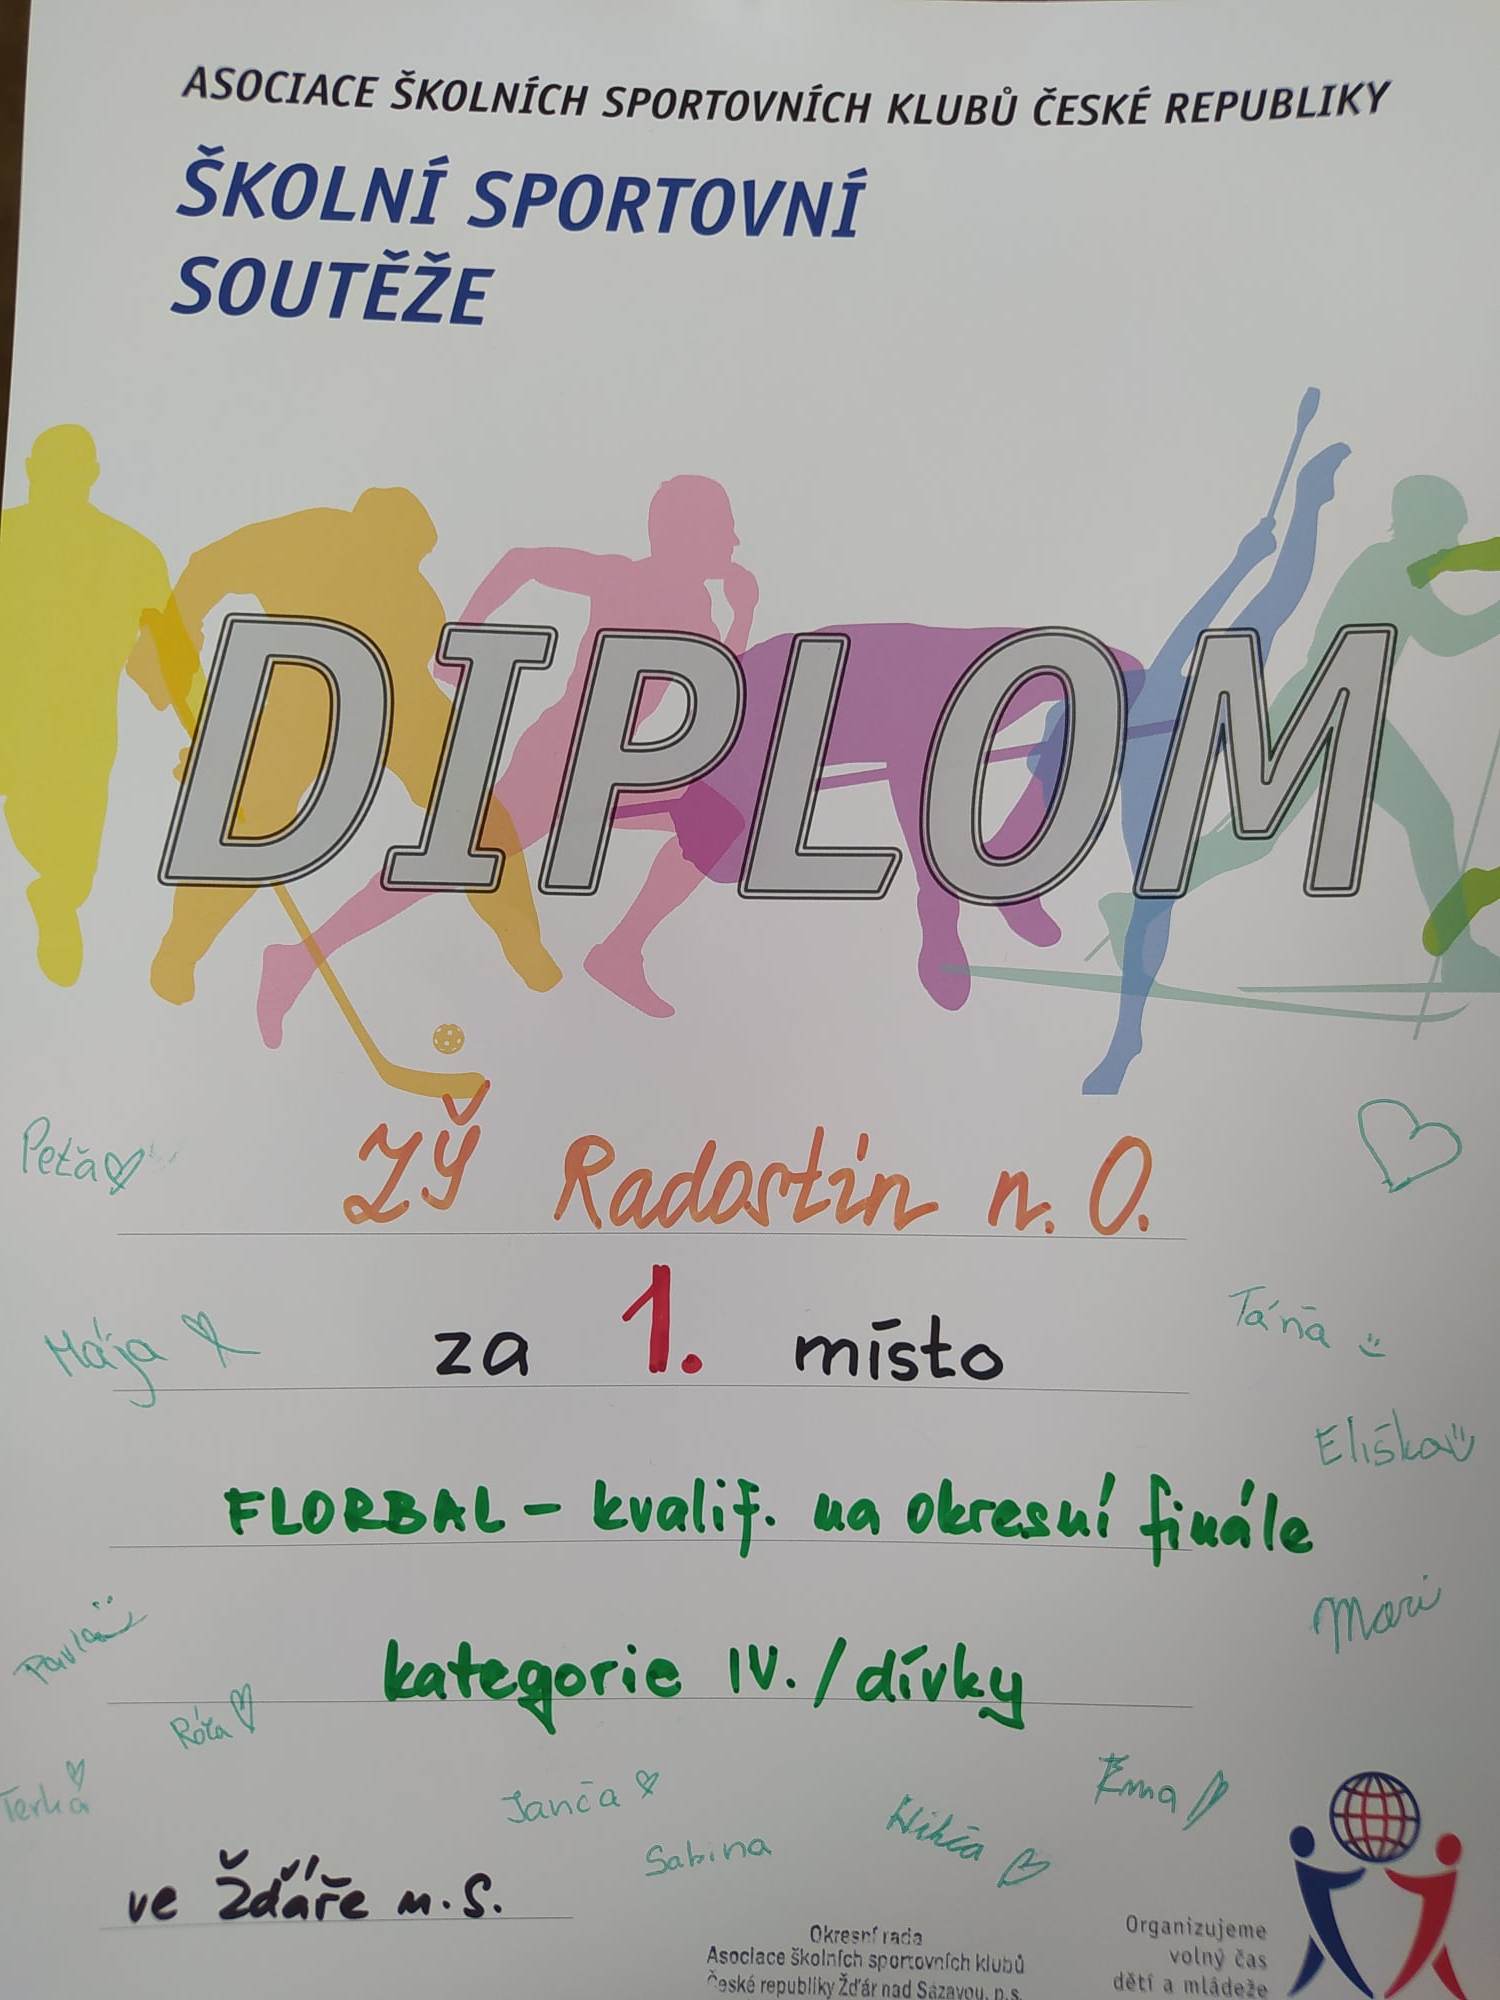 ASOCIACE ŠKOLNÍCH SPORTOVNÍCH KLUBŮ ČESKÉ REPUBLIKY
ŠKOLNÍ SPORTOVNÍ
SOUTĚŽE
DIPLOM
Peťa
ZŠ Radostín n. O.
Mája
za 1. místo
Táňa
Eliška
FLORBAL – kvalif. na okresní finále
Mari
Pavla
kategorie IV. / dívky
Róza
Terka
Janča
Ema
Nikča
Sabina
ve Žďáře n. S.
Okresní rada
Asociace školních sportovních klubů
České republiky Žďár nad Sázavou, p.s.
Organizujeme
volný čas
dětí a mládeže